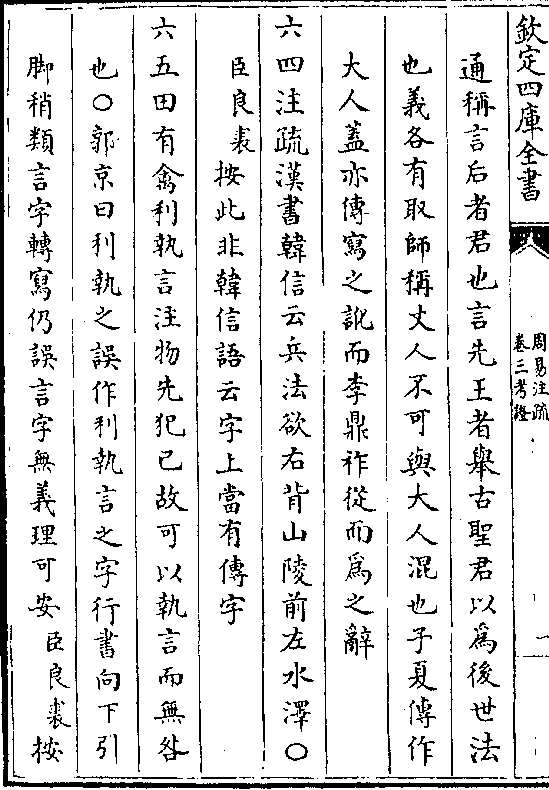 欽定四庫全書
周易注疏
卷三考證
一
通稱言后者君也言先王者舉古聖君以爲後世法
也義各有取師稱丈人不可與大人混也子夏傳作
大人蓋亦傳寫之訛而李鼎祚從而爲之辭
六四注疏漢書韓信云兵法欲右背山陵前左水澤○
臣良裘按此非韓信語云字上當有傳字
六五田有禽利執言注物先犯己故可以執言而無咎
也○郭京曰利執之誤作利執言之字行書向下引
脚稍類言字轉寫仍誤言字無義理可安臣良裘按